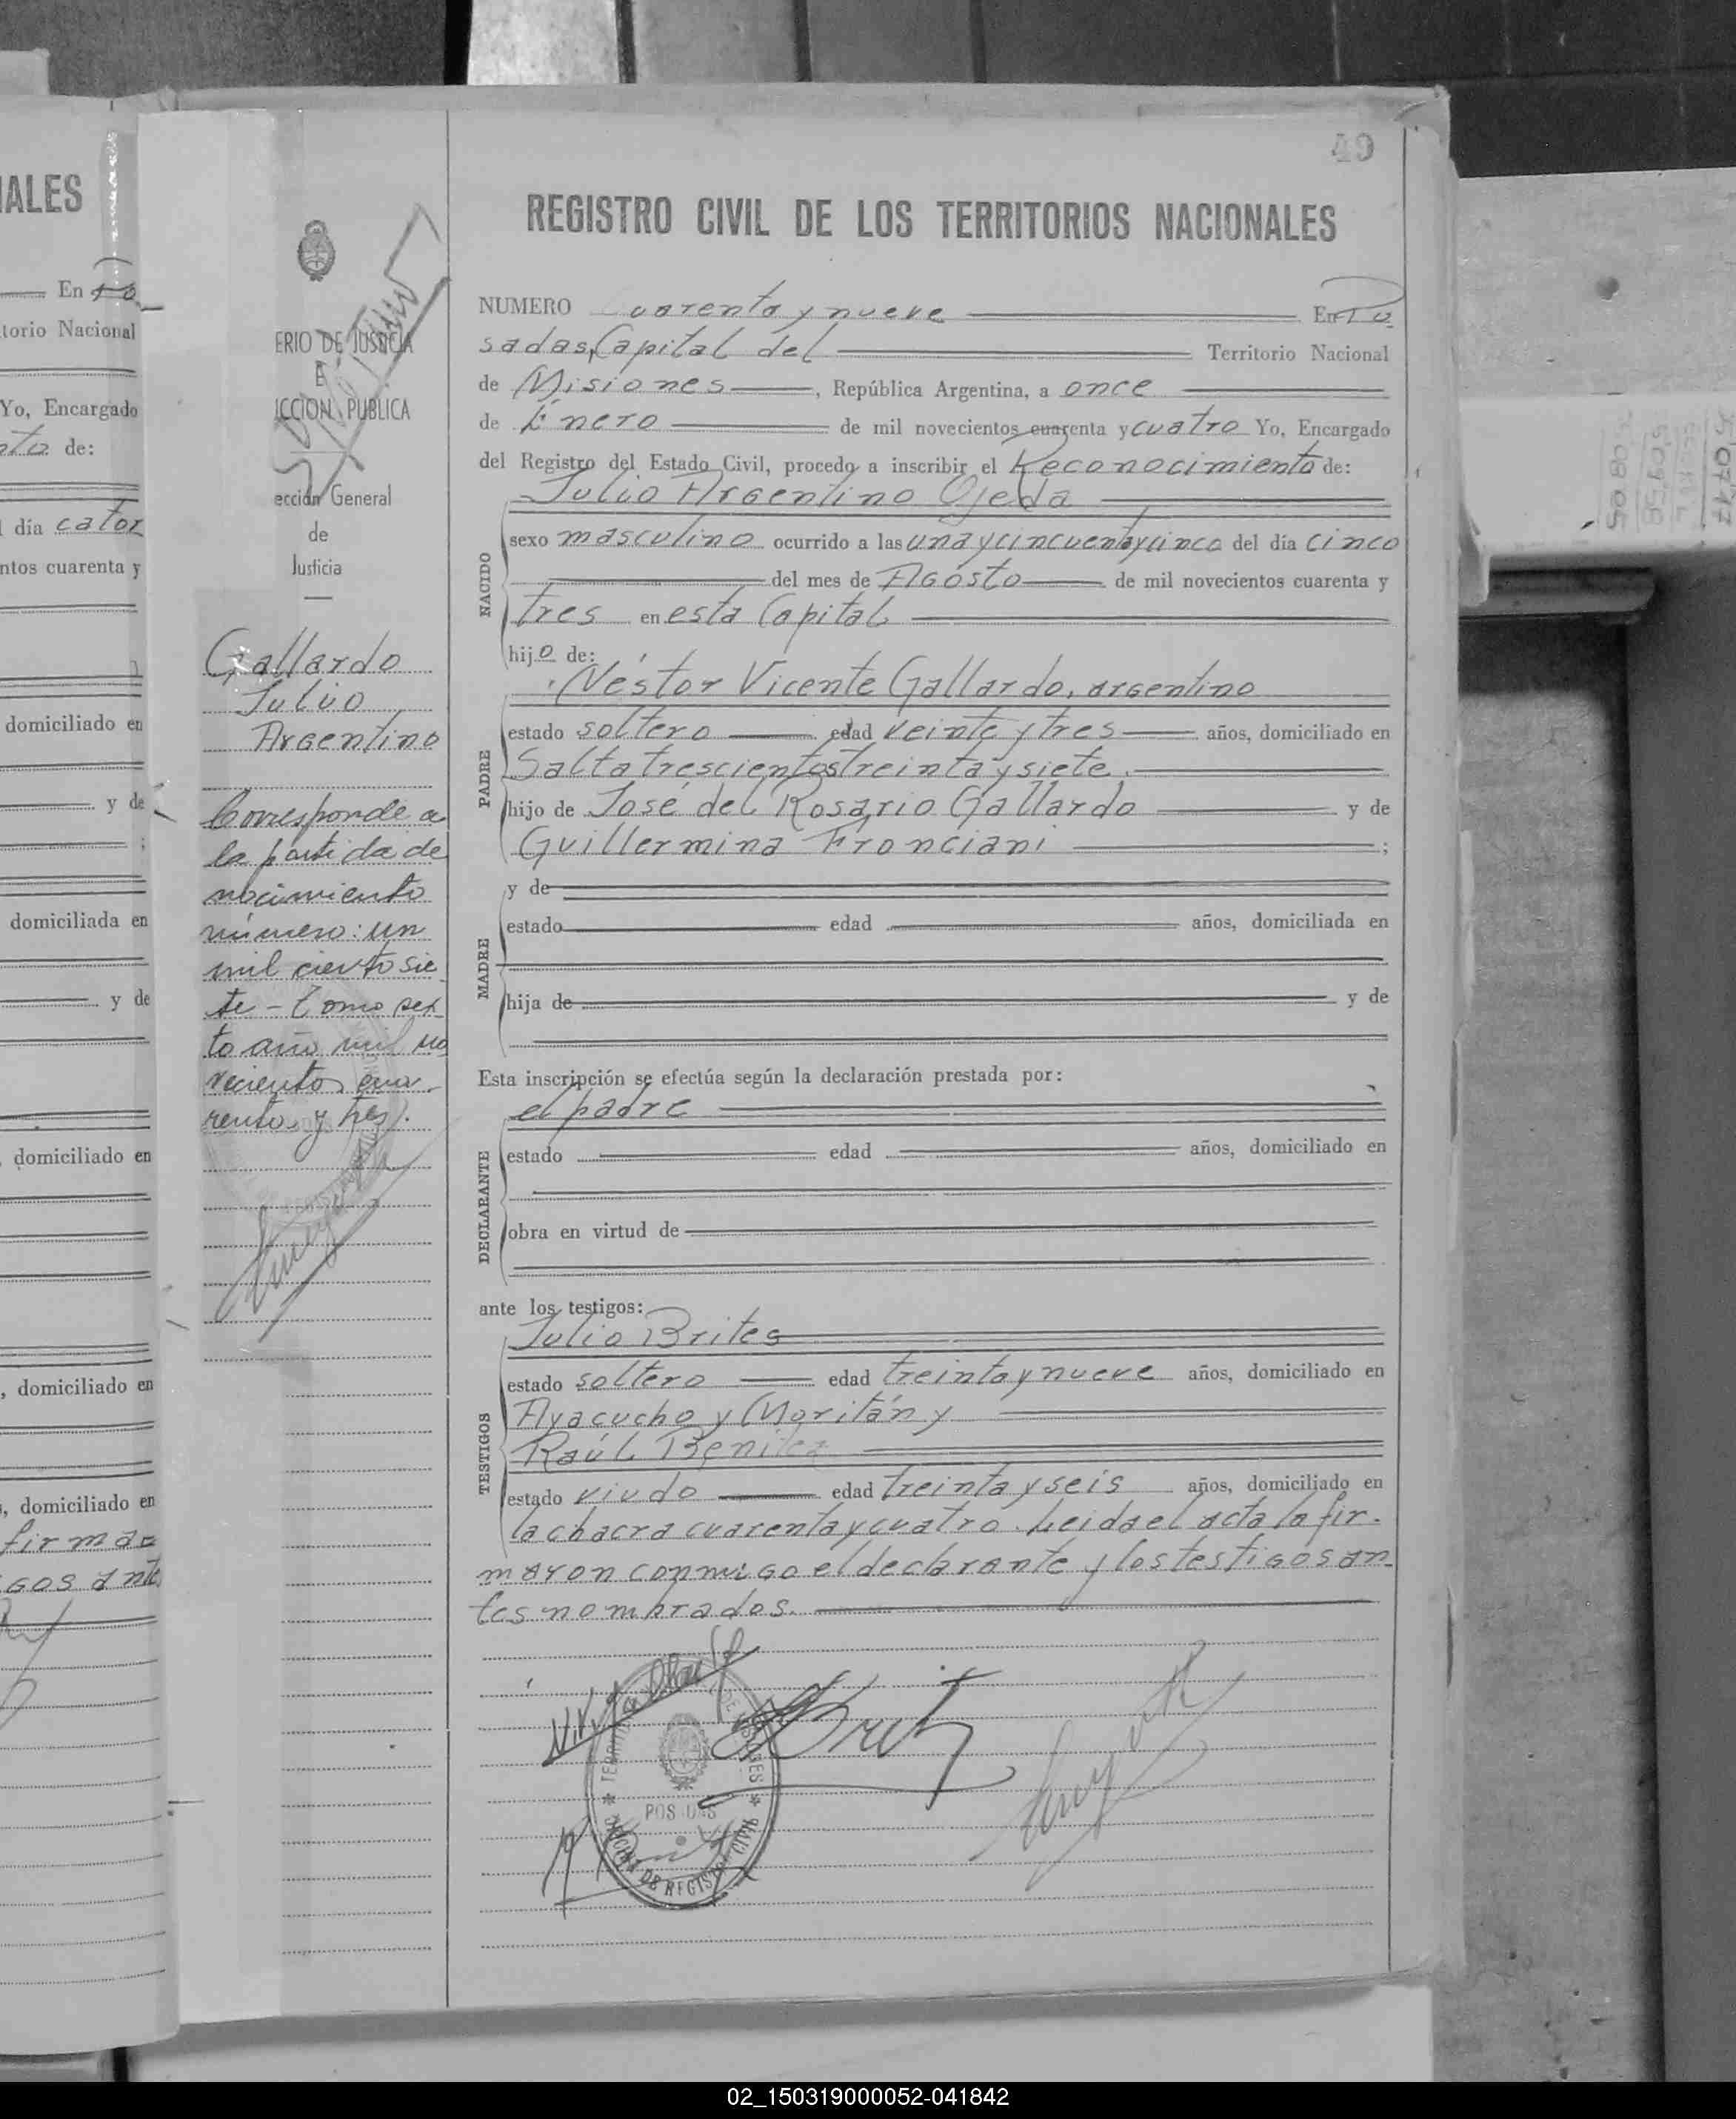 49
REGISTRO CIVIL DE LOS TERRITORIOS NACIONALES
NUMERO Cuarenta y nueve En Po
sadas, Capital del Territorio Nacional
de Misiones, República Argentina, a once
de Enero de mil novecientos cuarenta y cuatro Yo, Encargado
del Registro del Estado Civil, procedo a inscribir el Reconocimiento de:
Julio Argentino Ojeda
NACIDO
sexo masculino ocurrido a las una y cincuenta y cinco del día cinco
del mes de Agosto de mil novecientos cuarenta y
tres en esta Capital
hijo de:
Néstor Vicente Gallardo, argentino
PADRE
estado soltero edad veinte y tres años, domiciliado en
Salta trescientos treinta y siete.
hijo de José del Rosario Gallardo y de
Guillermina Fronciani ;
MADRE
y de
estado edad años, domiciliada en
hija de y de
Esta inscripción se efectúa según la declaración prestada por:
el padre
DECLARANTE
estado edad años, domiciliado en
obra en virtud de
ante los testigos:
TESTIGOS
Julio Brites
estado soltero edad treinta y nueve años, domiciliado en
Ayacucho y Moritán y
Raúl Benitez
estado viudo edad treinta y seis años, domiciliado en
la chacra cuarenta y cuatro. Leida el acta la fir-
maron conmigo el declarante y los testigos an-
tes nombrados.
POSADAS
OFICINA DE REGISTRO CIVIL
ERIO DE JUSTICIA
E
ICCION PUBLICA
ección General
de
Justicia
Gallardo
Julio
Argentino
Corresponde a
la partida de
nacimiento
número: un
mil ciento sie
te - Tomo sex
to año mil no
vecientos cua-
renta y tres.
IALES
En Po
torio Nacional
Yo, Encargado
nto de:
l día cator
ntos cuarenta y
domiciliado en
y de
;
domiciliada en
y de
, domiciliado en
, domiciliado en
, domiciliado en
firma=
gos ante
02_150319000052-041842